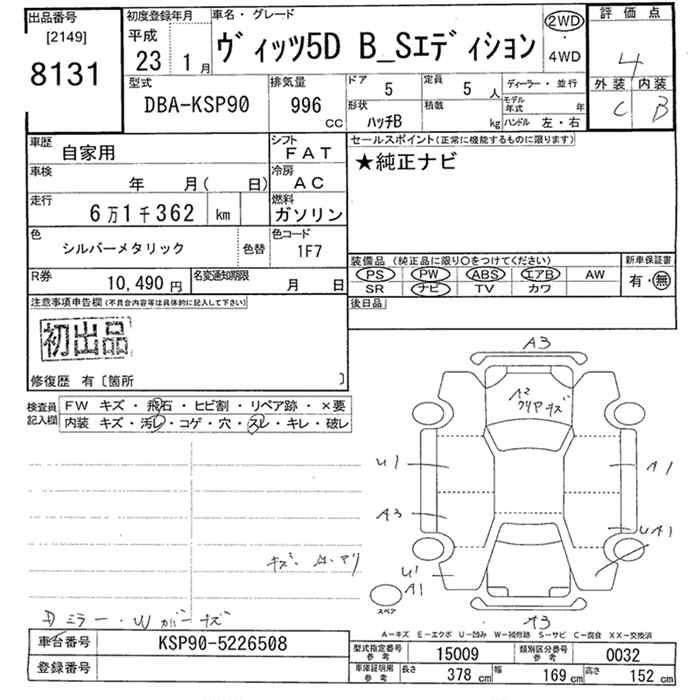 出品番号
[2149]
8131
初度登録年月
平成
23 1月
車名・グレード
ヴィッツ5D B_Sエディション
2WD
・
4WD
評価点
4
外装 内装
C B
型式
DBA-KSP90
排気量
996 CC
ドア
5
定員
5 人
形状
ハッチB
積載
kg
ディーラー・並行
モデル年式 年
ハンドル 左・右
車歴
自家用
シフト
FAT
車検
年 月( 日)
冷房
AC
走行
6万1千362 km
燃料
ガソリン
色
シルバーメタリック
色替
色コード
1F7
R券
10,490円
名変通知期限
月 日
セールスポイント(正常に機能するものに限ります)
★純正ナビ
装備品(純正品に限り○をつけてください)
PS PW ABS エアB AW
SR ナビ TV カワ
新車保証書
有・無
後日品
注意事項申告欄(不具合内容等は具体的に記入して下さい)
初出品
修復歴 有〔箇所 〕
検査員記入欄
FW キズ・飛石・ヒビ割・リペア跡・×要
内装 キズ・汚レ・コゲ・穴・スレ・キレ・破レ
A3
A2
クリアキズ
U1
A1
A3
UA1
U1
A1
スペア
A3
Dミラー・Wガキズ
A-キズ E-エクボ U-凹み W-補修跡 S-サビ C-腐食 XX-交換済
車台番号
KSP90-5226508
登録番号
型式指定番号 参考
15009
類別区分番号 参考
0032
車庫証明用 参考
長さ 378 cm
幅 169 cm
高さ 152 cm